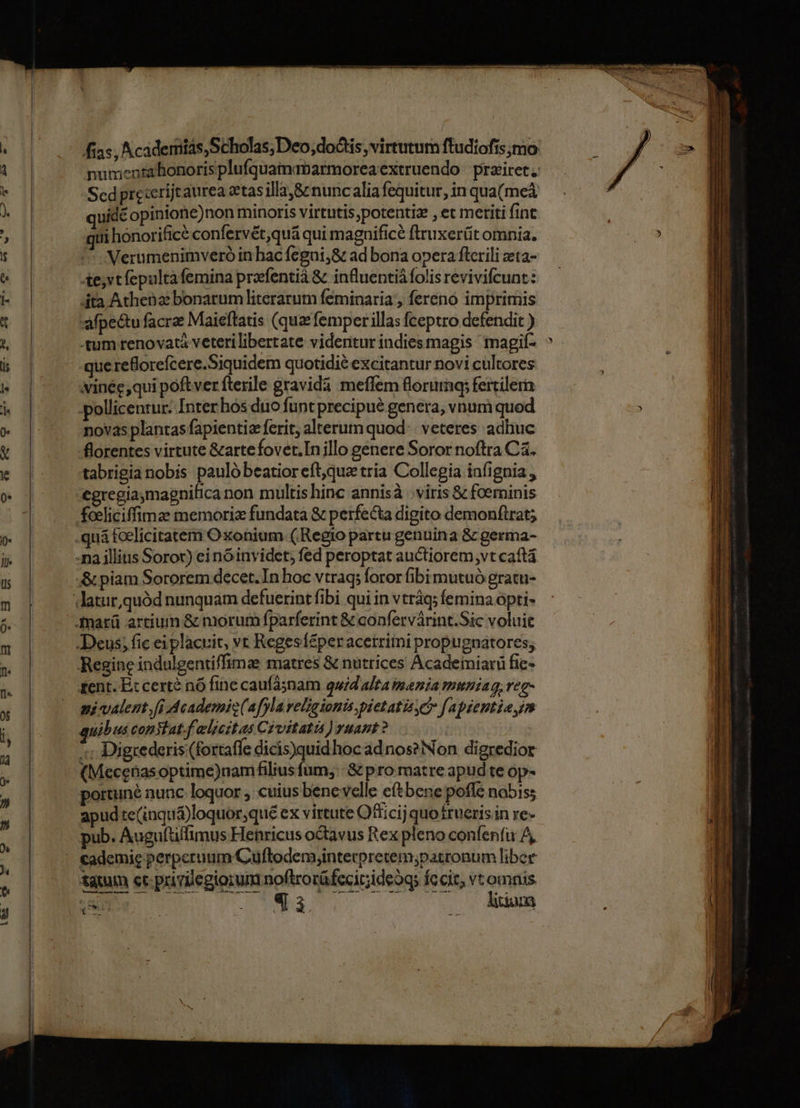 ſias, Academiãs, Scholas, Deo, doctis, virtutum ſtudioſis, mo
numenta honoris pluſquam marmorea extruendo præiret.
Sed præterijt aurea ætas illa, & nunc alia ſequitur, in qua (meâ
quidẽ opinione) non minoris virtutis, potentiæ, et meriti ſint
qui honorificè conſervẽt, quã qui magnificè ſtruxerũt omnia.
Verumenimverò in hac ſegni, & ad bona opera ſterili æta-
te, vt ſepulta ſemina præſentiâ & influentiâ ſolis reviviſcunt:
ita Athenæ bonarum literarum ſeminaria, ſereno imprimis
aſpectu ſacræ Maieſtatis (quæ ſemper illas ſceptro defendit)
tum renovatâ veteri libertate videntur indies magis magiſ-
que refloreſcere. Siquidem quotidiè excitantur novi cultores
vineę, qui poſt ver ſterile gravidâ meſſem florumq; fertilem
pollicentur. Inter hos duo ſunt precipuè genera, vnum quod
novas plantas ſapientiæ ſerit, alterum quod veteres adhuc
florentes virtute & arte fovet. In illo genere Soror noſtra Cã.
tabrigia nobis paulò beatior eſt, quæ tria Collegia inſignia,
egregia, magnifica non multis hinc annis à viris & fœminis
fœliciſſimæ memoriæ fundata & perfecta digito demonſtrat;
quã fœlicitatem Oxonium (Regio partu genuina & germa-
na illius Soror) ei nõ invidet, ſed peroptat auctiorem, vt caſtã
& piam Sororem decet. In hoc vtraq; ſoror ſibi mutuò gratu-
latur, quòd nunquam defuerint ſibi qui in vtrâq; ſemina opti-
marũ artium & morum ſparſerint & conſervârint. Sic voluit
Deus, ſic ei placuit, vt Reges ſẽper acerrimi propugnatores,
Reginę indulgentiſſimæ matres & nutrices Academiarũ fie-
rent. Et certè nõ ſine cauſâ; nam quid alta mænia muniaq, reg-
ni valent, ſi Academię (aſyla religionis, pietatis, & ſapientiæ, in
quibus conſtat fœlicitas Civitatis) ruant?
Digrederis (fortaſſe dicis) quid hoc ad nos? Non digredior
(Mecęnas optime) nam filius ſum, & pro matre apud te op-
portunè nunc loquor, cuius bene velle eſt bene poſſe nobis;
apud te (inquã) loquor, quẽ ex virtute Officij quo frueris in re-
pub. Auguſtiſſimus Henricus octavus Rex pleno conſenſu A,
cademię perpetuum Cuſtodem, interpretem, patronum liber
tatum et privilegiorum noſtrorũ fecit; ideòq; fecit, vt omnis
¶ 3 litium